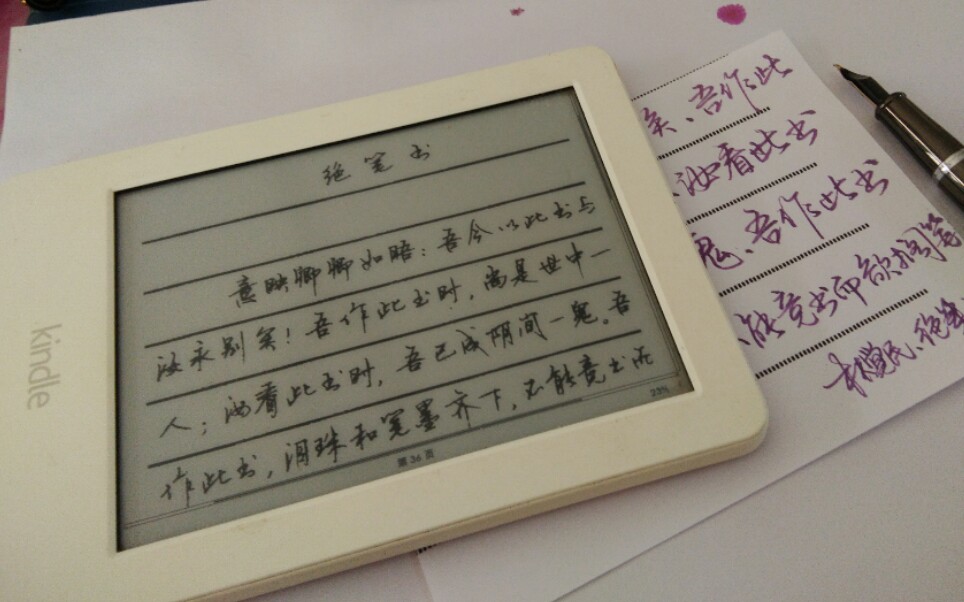 kindle
绝笔书
意映卿卿如晤：吾今以此书与
汝永别矣！吾作此书时，尚是世中一
人；汝看此书时，吾已成阴间一鬼。吾
作此书，泪珠和笔墨齐下，不能竟书而
第 36 页
矣、吾作此
、汝看此书
鬼、吾作此书
能竟书而欲搁笔
林觉民、绝笔